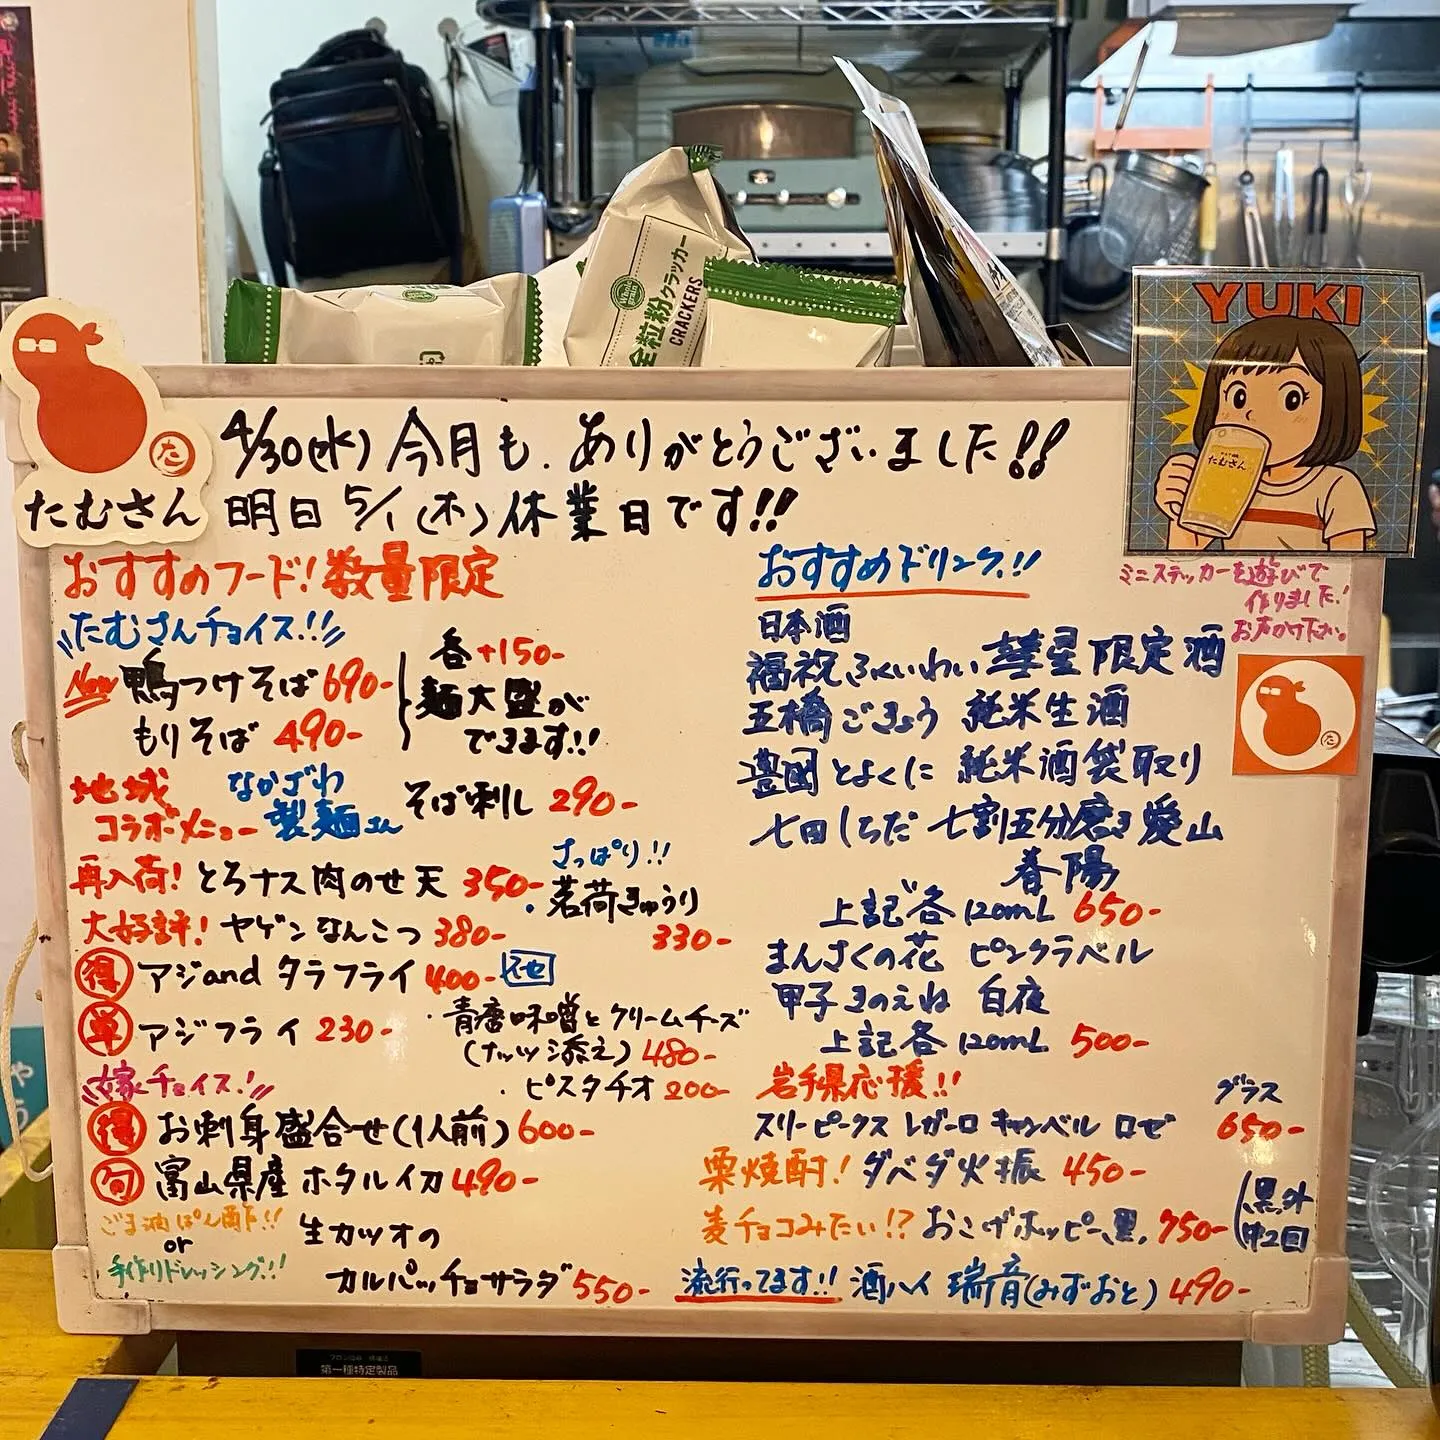 全粒粉クラッカー
CRACKERS
YUKI
たむさん
た
たむさん
4/30(水) 今月も、ありがとうございました!!
明日 5/1 (木) 休業日です!!
ミニステッカーを遊びで
作りました!
お声かけ下さい。
おすすめフード! 数量限定
たむさんチョイス!!
New 鴨つけそば 690-
もりそば 490-
各+150-
麺大盛が
できます!!
地域
コラボメニュー
なかざわ
製麺さん
そば刺し 290-
再入荷! とろナス肉のせ天 350-
さっぱり!!
・茗荷きゅうり
330-
大好評! ヤゲンなんこつ 380-
得 アジandタラフライ 400-
単 アジフライ 230-
その他
・青唐味噌とクリームチーズ
(ナッツ添え) 480-
・ピスタチオ 200-
嫁チョイス!!
得 お刺身盛合せ(1人前) 600-
旬 富山県産 ホタルイカ 490-
ごま油ぽん酢!!
or
手作りドレッシング!!
生カツオの
カルパッチョサラダ 550-
おすすめドリンク!!
日本酒
福祝 ふくいわい 彗星 限定酒
五橋 ごきょう 純米生酒
豊國 とよくに 純米酒袋取り
七田 しちだ 七割五分磨き 愛山
春陽
上記各 120mL 650-
まんさくの花 ピンクラベル
甲子 きのえね 白夜
上記各 120mL 500-
岩手県応援!!
グラス
スリーピークス レガーロ キャンベル ロゼ 650-
栗焼酎! ダバダ火振 450-
麦チョコみたい!? おこげホッピー、黒、 750-
(黒、外
中2回
流行ってます!! 酒ハイ 瑞音(みずおと) 490-
た
第一種特定製品